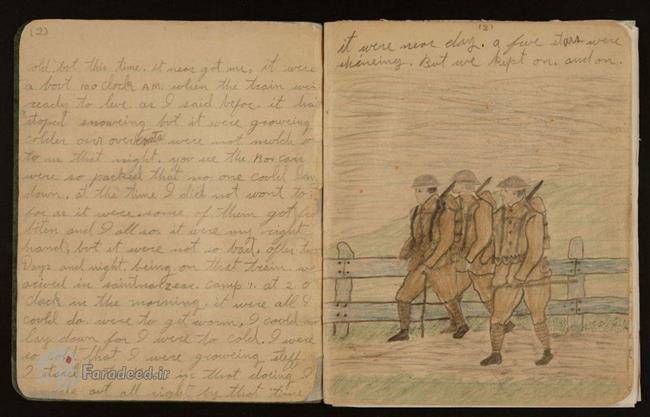 (2)
cold but this time. it near got me, it were
a bout 1:20 clock A.M. when the train wer
ready to leve. as I said befor. it had
stoped snoweing but it were groweing
colder our overcoats were not mutch
to us that night. you see the Box cars
were so packed that no one could
down. at the time I did not wont to
for as it were. some of them got
biten and I all so. it were my right
hand, but it were not so bad. after two
Days and night. being on that train. we
arived in camp 1. at 2.0
clock in the morning. it were all I
could do were to get worm, I could
lay down for I were to cold. I were
so cold that I were groweing
I in that doing I
out all right by that time
(2)
it were near day. a few stars were
shineing. But we kept on. and on.
Faradeed.ir